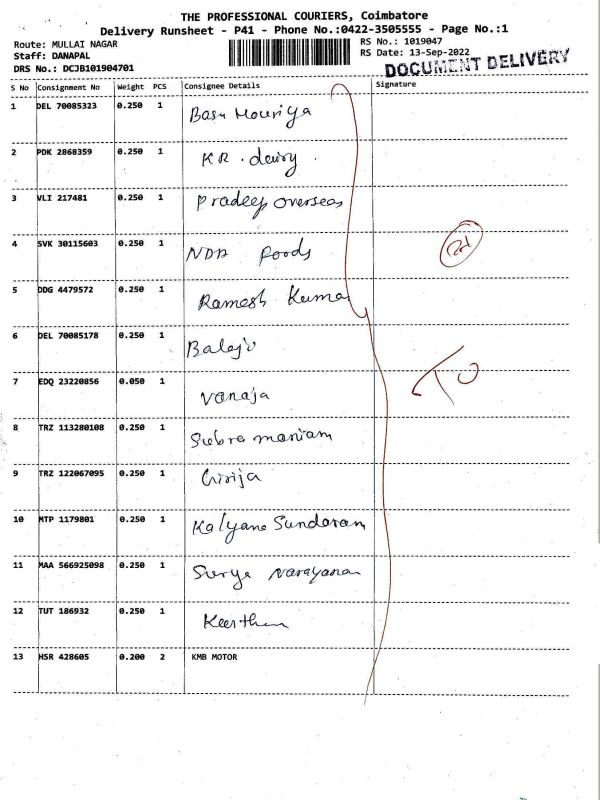 THE PROFESSIONAL COURIERS, Coimbatore
Delivery Runsheet - P41 - Phone No.:0422-3505555 - Page No.:1
Route: MULLAI NAGAR RS No.: 1019047
Staff: DANAPAL RS Date: 13-Sep-2022
DRS No.: DCJB101904701 DOCUMENT DELIVERY
S No Consignment No Weight PCS Consignee Details Signature
1 DEL 70085323 0.250 1 Basu Mouriya
2 PDK 2868359 0.250 1 KR. dairy
3 VLI 217481 0.250 1 Pradeep overseas
4 SVK 30115603 0.250 1 NDA foods
5 DDG 4479572 0.250 1 Ramesh Kumar
6 DEL 70085178 0.250 1 Balaji
7 EDQ 23220856 0.050 1 Vanaja
8 TRZ 113280108 0.250 1 Subramaniam
9 TRZ 122067095 0.250 1 Girija
10 MTP 1179801 0.250 1 Kalyana Sundaram
11 MAA 566925098 0.250 1 Surya Narayanan
12 TUT 186932 0.250 1
13 HSR 428605 0.200 2 KMB MOTOR